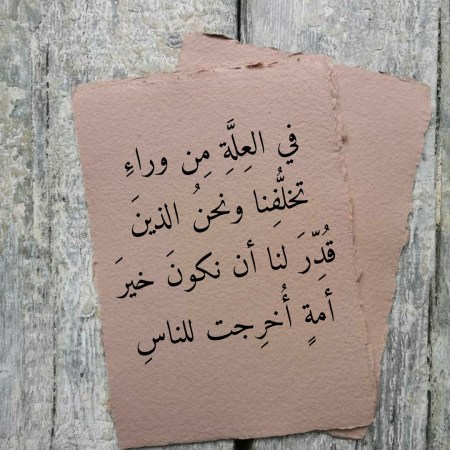 في العِلَّةِ مِن وراءِ
تخلُّفِنا ونحنُ الذينَ
قُدِّرَ لنا أن نكونَ خيرَ
أمةٍ أُخرِجت للناسِ